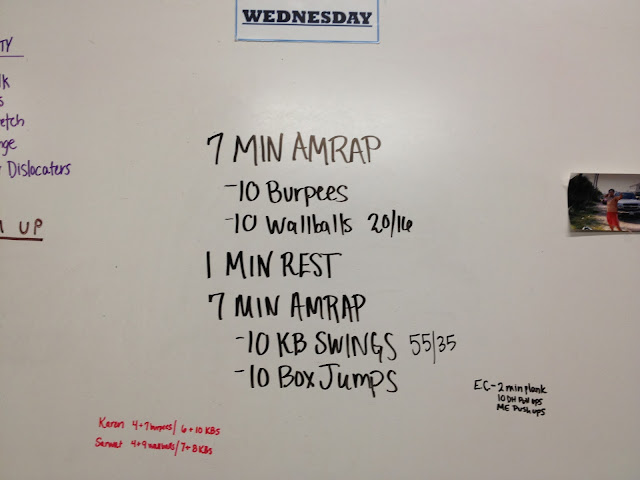 WEDNESDAY
TY
lk
s
etch
nge
Dislocaters
UP
7 MIN AMRAP
-10 Burpees
-10 Wallballs 20/14
1 MIN REST
7 MIN AMRAP
-10 KB SWINGS 55/35
-10 Box Jumps
EC-2 min plank
10 DH Pull ups
ME Push ups
Karen 4+7 burpees/ 6+10 KBs
4+9 wallballs/7+8 KBs